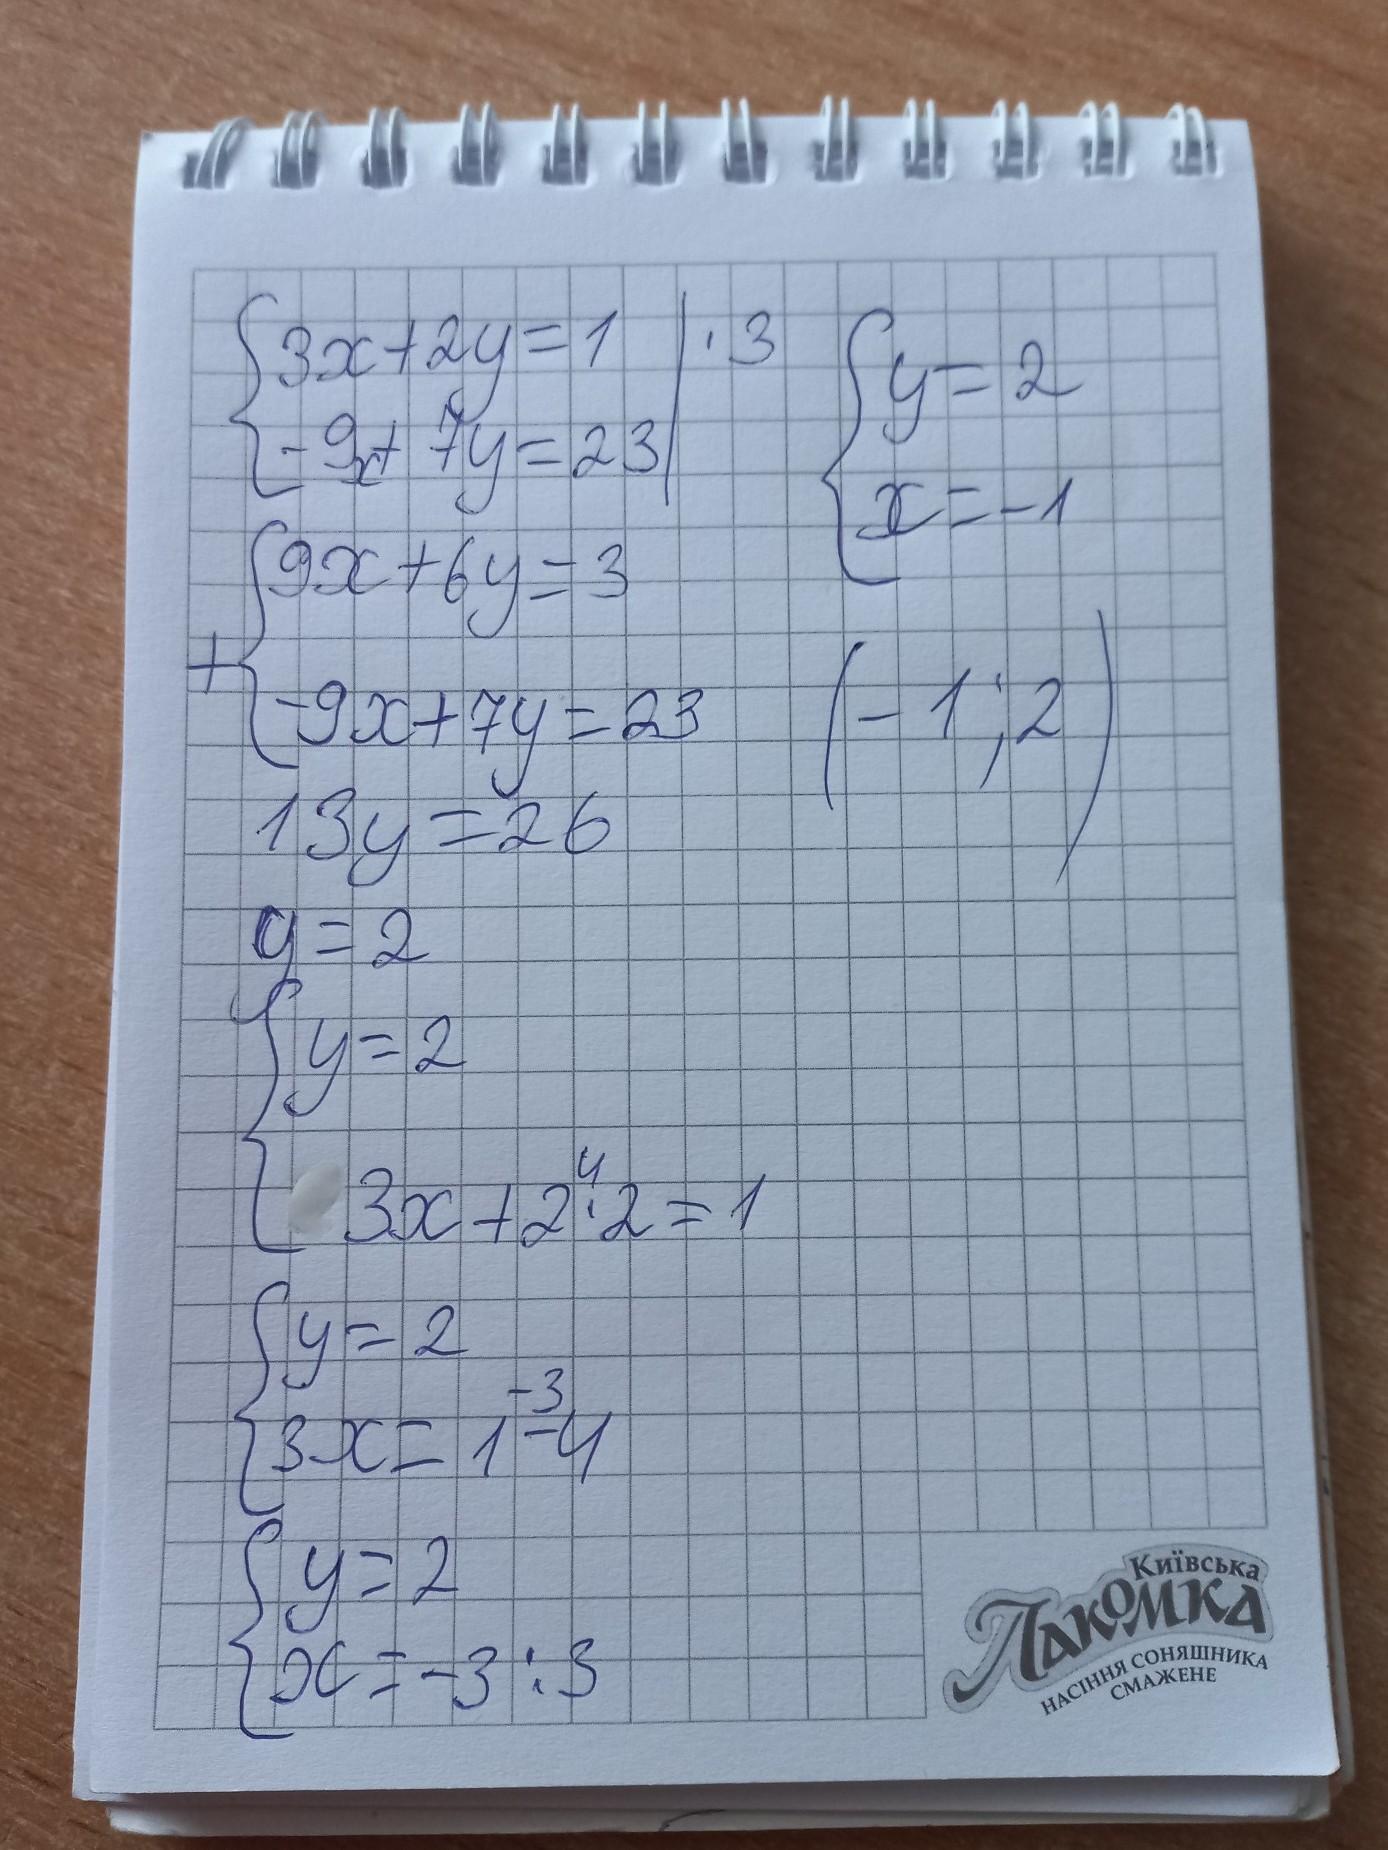 3x+2y=1 | ·3
-9x+7y=23
9x+6y=3
+
-9x+7y=23
13y=26
y=2
y=2
4
3x+2·2=1
y=2
-3
3x=1-4
y=2
x=-3:3
y=2
x=-1
(-1;2)
Київська
Лакомка
НАСІННЯ СОНЯШНИКА
СМАЖЕНЕ